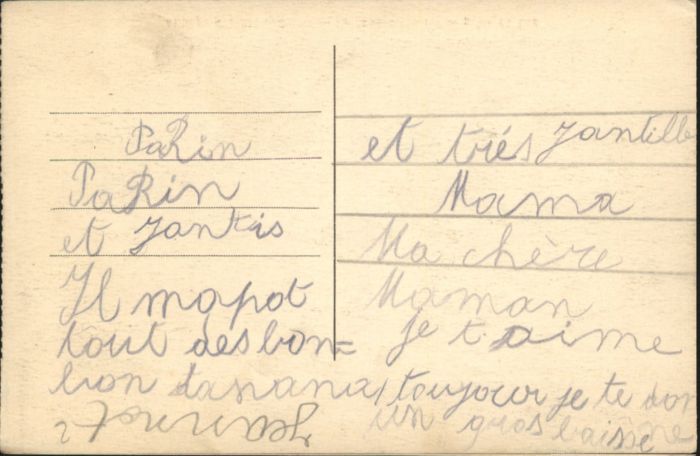 PaRin
PaRin
et Jantis
Il mapot
tout des bon=
bon
et trés Jantille
Mama
Ma chère
Maman
je t aime
toujour je te don
un gros baisse